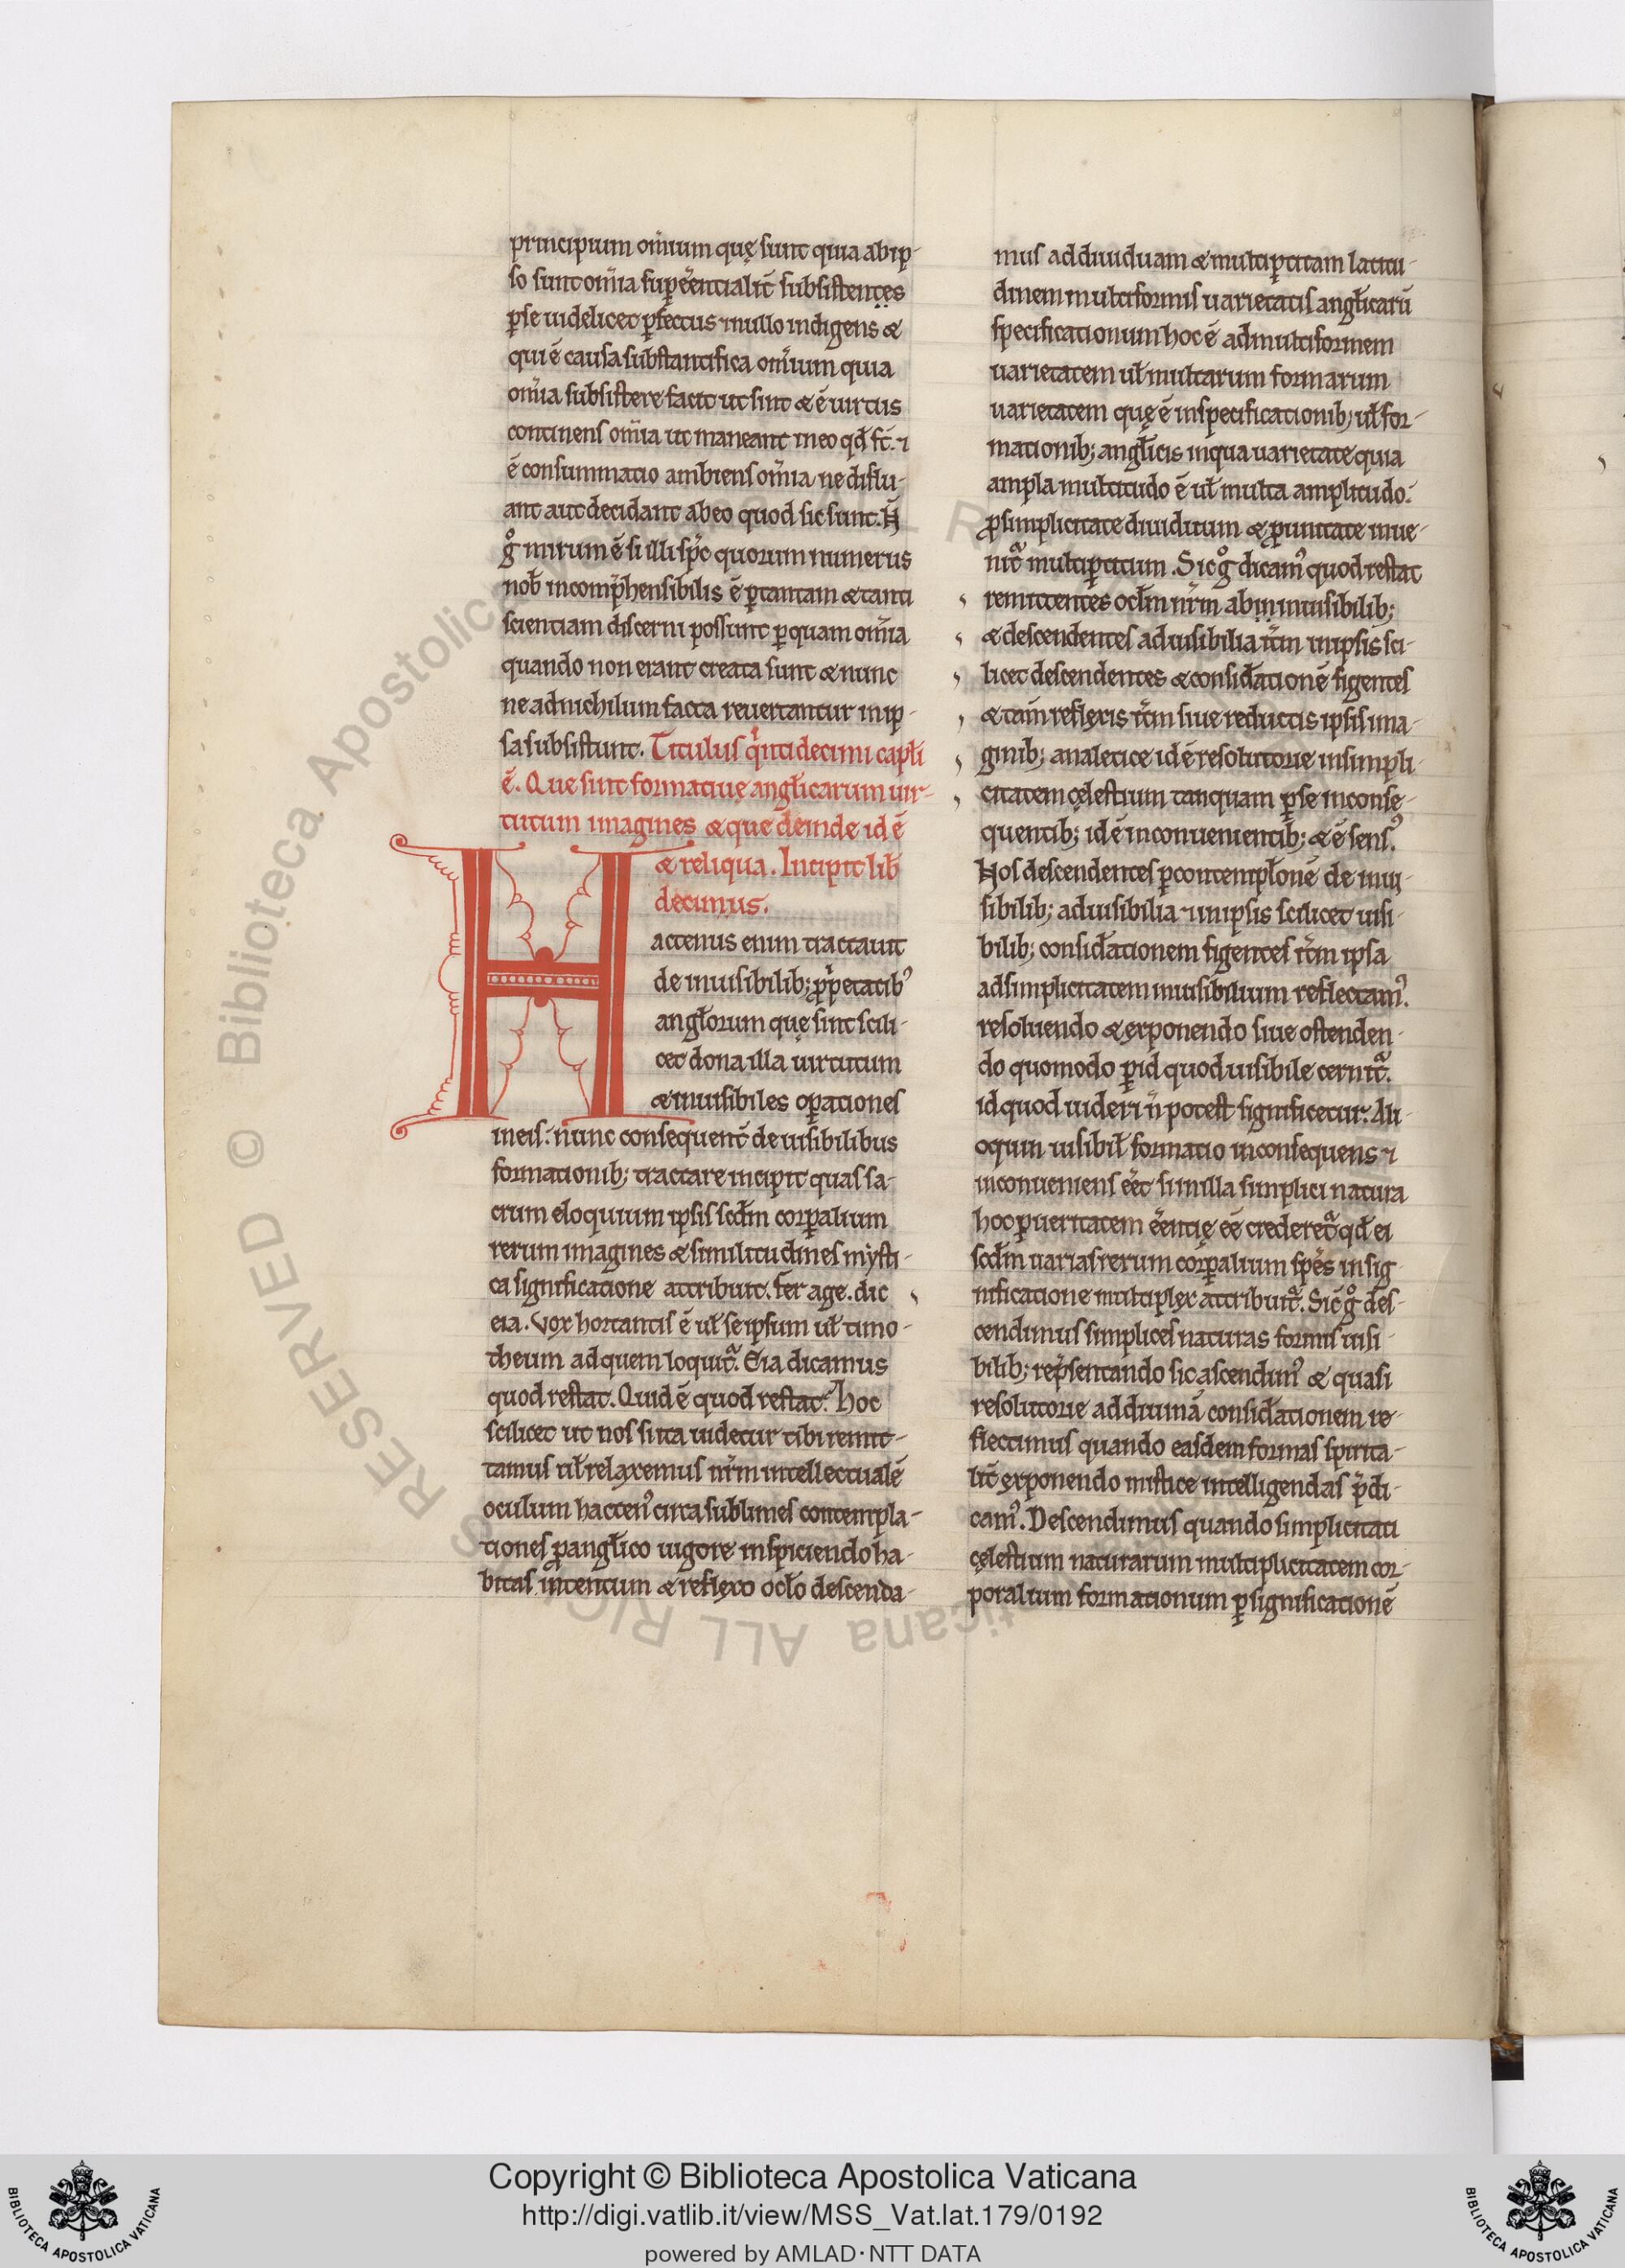 principium om̄ium quę sunt quia ab ip-
so sunt om̄ia sup̱eēntialit̄ subsistentes
ꝑse uidelicet ꝑfectus ⁊ nullo indigens &
qui ē causa substantifica om̄ium quia
om̄ia subsistere facit ut sint & ē uirtus
continens om̄ia ut maneant in eo qd̄ s̄t. ⁊
ē consummatio ambiens om̄ia ne diflu-
ant aut decidant ab eo quod sic sunt. H̄
gͦ mirum ē si illi sp̄c quorum numerus
nob̄ incomp̄hensibilis ē ꝑ tantam & tanti
scientiam discerni possunt ꝑ quam om̄ia
quando non erant creata sunt & nunc
ne ad nichilum facta reuertantur in ip-
sa subsistunt. Titulus qⁱnti decimi capt̄i
ē. Que sint formatiuę angl̄icarum uir-
tutum imagines & que deinde id ē
& reliqua. Incipit lib̄
decimus.
Hactenus enim tractauit
de inuisibilib; ꝓp̱etatib⁹
angl̄orum quę sint scili-
cet dona illa uirtutum
& inuisibiles oꝑationes
in eis: nunc consequent̄ de uisibilibus
formationib; tractare incipit quas sa-
crum eloquium ipsis scd̄m corꝑalium
rerum imagines & similitudines mẏsti-
ca significatione attribuit. fer age. dic
eia. Vox hortantis ē ul̄ seipsum ul̄ timo-
theum ad quem loquit᷑. Eia dicamus
quod restat. Quid ē quod restat: Hoc
scilicet ut nos si ita uidetur tibi remit-
tamus ul̄ relaxemus nr̄m intellectualē
oculum hacten⁹ circa sublimes contempla-
tiones ꝑ angl̄ico uigore inspiciendo ha-
bitas intentum & reflexo ocl̄o descenda-
mus ad diuiduam & multiꝑtitam latitu-
dinem multiformis uarietatis angl̄icarū
specificationum hoc ē ad multiformem
uarietatem ul̄ multarum formarum
uarietatem quę ē in specificationib; ul̄ for-
mationib; angl̄icis in qua uarietate quia
ampla multitudo ē ul̄ multa amplitudo.
ꝓ simplicitate diuiduum & ꝓ unitate inue-
nit᷑ multiꝑtitum. Sic gͦ dicam⁹ quod restat
remittentes ocl̄m nr̄m ab inuisibilib;
& descendentes ad uisibilia it̄m in ipsis sci-
licet descendentes & consid̄ationē figentes
& tam reflexis it̄m siue reductis ipsis ima-
ginib; analetice id ē resolutorie in simpli-
citatem cęlestium tanquam ꝑ se inconse-
quentib; id ē inconuenientib; & ē sens⁹.
Nos descendentes ꝑ contempl̄onē de inui-
sibilib; ad uisibilia ⁊ in ipsis scilicet uisi-
bilib; consid̄ationem figentes it̄m ipsa
ad simplicitatem inuisibilium reflectam⁹.
resoluendo & exponendo siue ostenden-
do quomodo ꝑ id quod uisibile cernit᷑.
id quod uideri n̄ potest significetur. Ali-
oquin uisibil̄ formatio inconsequens ⁊
inconueniens eēt si in illa simplici natura
hoc ꝑ ueritatem eēntię eē crederet᷑ qd̄ ei
scd̄m uarias rerum corꝑalium sp̄es in sig-
nificatione multiplex attribuit᷑. Sic gͦ des-
cendimus simplices naturas formis uisi-
bilib; rep̄sentando sic ascendim⁹ & quasi
resolutorie ad diuinā consid̄ationem re-
flectimus quando easdem formas spirita-
lit̄ exponendo mistice intelligendas p̄di-
cam⁹. Descendimus quando simplicitati
cęlestium naturarum multiplicitatem cor-
poralium formationum ꝑ significationē
© Biblioteca Apostolica Vaticana ALL RIGHTS RESERVED
Copyright © Biblioteca Apostolica Vaticana
http://digi.vatlib.it/view/MSS_Vat.lat.179/0192
powered by AMLAD·NTT DATA
BIBLIOTECA APOSTOLICA VATICANA
BIBLIOTECA APOSTOLICA VATICANA